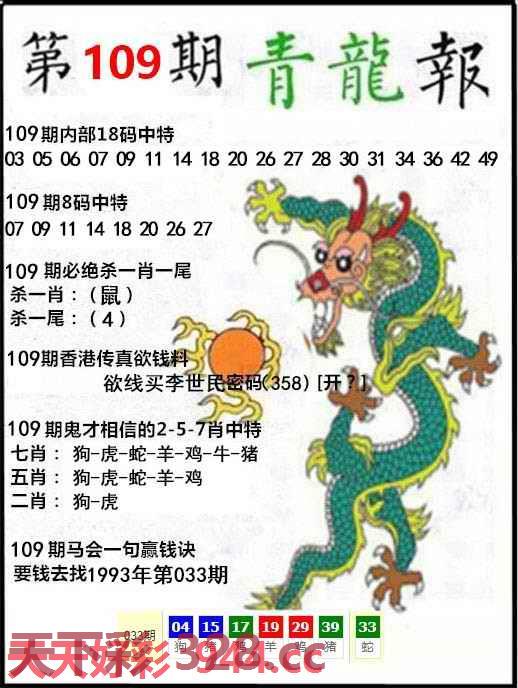 第109期青龍報
109期内部18码中特
03 05 06 07 09 11 14 18 20 26 27 28 30 31 34 36 42 49
109期8码中特
07 09 11 14 18 20 26 27
109期必绝杀一肖一尾
杀一肖:(鼠)
杀一尾:(4)
109期香港传真欲钱料
欲线买李世民密码(358) [开?]
109期鬼才相信的2-5-7肖中特
七肖: 狗-虎-蛇-羊-鸡-牛-猪
五肖: 狗-虎-蛇-羊-鸡
二肖: 狗-虎
109期马会一句赢钱诀
要钱去找1993年第033期
033期 04 15 17 19 29 39 33
狗 羊 鸡 猪 蛇
天下好彩3928.cc